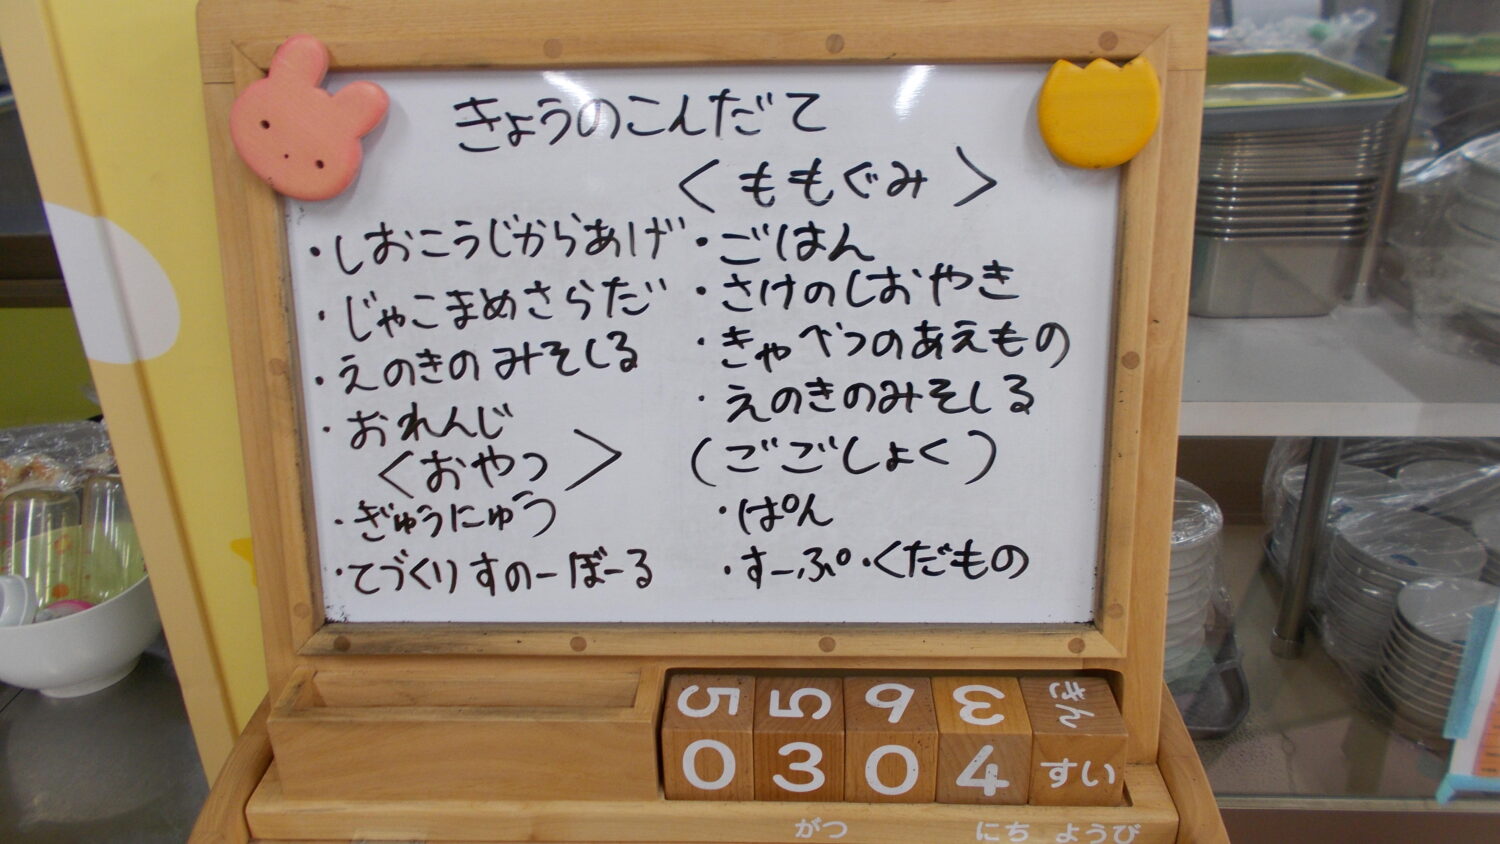 きょうのこんだて
・しおこうじからあげ
・じゃこまめさらだ
・えのきのみそしる
・おれんじ
＜おやつ＞
・ぎゅうにゅう
・てづくりすのーぼーる
＜ももぐみ＞
・ごはん
・さけのしおやき
・きゃべつのあえもの
・えのきのみそしる
(ごごしょく)
・ぱん
・すーぷ・くだもの
5 5 9 3 きん
0 3 0 4 すい
がつ にち ようび